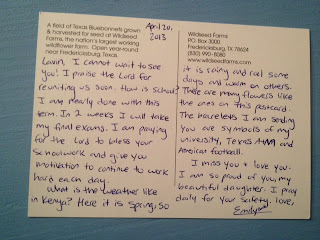 A field of Texas Bluebonnets grown
& harvested for seed at Wildseed
Farms, the nation's largest working
wildflower farm. Open year-round
near Fredericksburg, Texas.
April 20,
2013
Wildseed Farms
PO Box 3000
Fredericksburg, TX 78624
(830) 990-8080
www.wildseedfarms.com
I cannot wait to see
you! I praise the Lord for
reuniting us soon. How is school?
I am nearly done with this
term. In 2 weeks I will take
my final exams. I am praying
for the Lord to bless your
schoolwork and give you
motivation to continue to work
hard each day.
What is the weather like
in Kenya? Here it is Spring, so
it is rainy and cool some
days and warm on others.
There are many flowers like
the ones on this postcard.
The bracelets I am sending
you are symbols of my
university, Texas A&M and
American football.
I miss you & love you.
I am so proud of you, my
beautiful daughter. I pray
daily for your safety. Love,
Emily